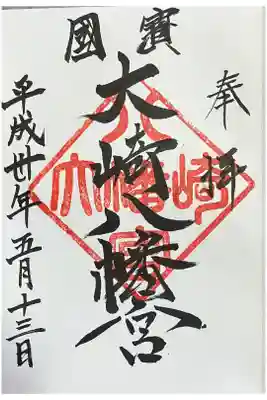 奉拝
國寳
大崎八幡宮
大崎八幡宮
平成卅年五月十三日